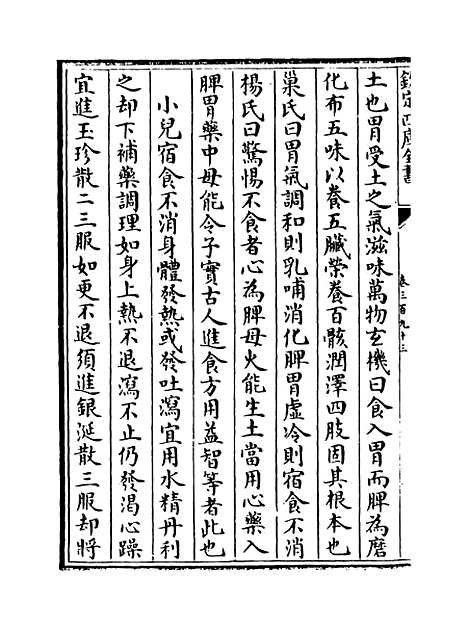 欽定四庫全書
卷三百九十三
土也胃受土之氣滋味萬物玄機曰食入胃而脾為磨
化布五味以養五臟榮養百骸潤澤四肢固其根本也
巢氏曰胃氣調和則乳哺消化脾胃虛冷則宿食不消
楊氏曰驚惕不食者心為脾母火能生土當用心藥入
脾胃藥中母能令子實古人進食方用益智等者此也
小兒宿食不消身體發熱或發吐瀉宜用水精丹利
之却下補藥調理如身上熱不退瀉不止仍發渴心躁
宜進玉珍散二三服如更不退須進銀涎散三服却將